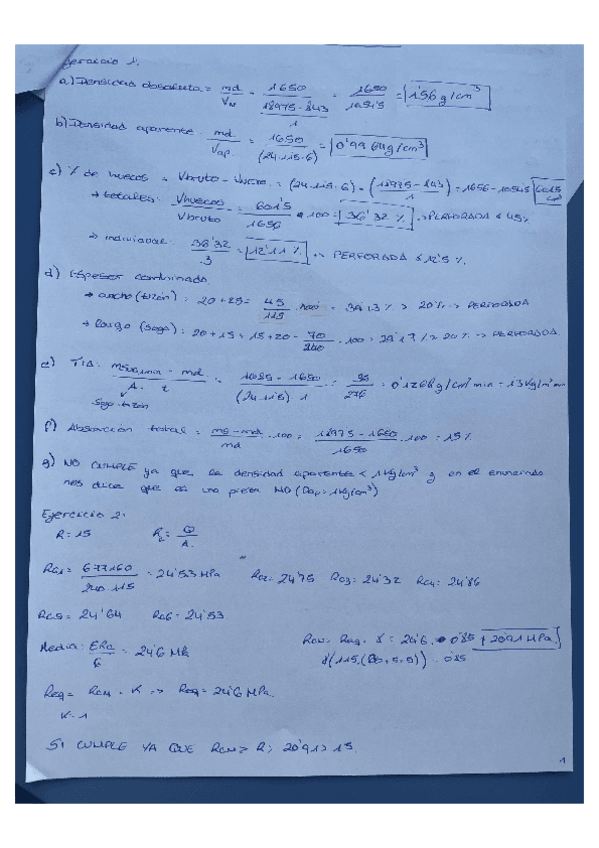 Ejercicio 1.
a) Densidad absoluta = md / Var = 1650 / (1897'5 - 843 / 1) = 1650 / 1054'5 = 1'56 g/cm³
b) Densidad aparente = md / Vap. = 1650 / (24·11'5·6) = 0'9964 g/cm³
c) % de huecos = Vbruto - = (24·11'5·6) - (1897'5 - 843 / 1) = 1656 - 1054'5 = 601'5 cm³
→ totales: Vhuecos / Vbruto = 601'5 / 1656 · 100 = 36'32 % → PERFORADA < 45%
→ individual: 36'32 / 3 = 12'11 % → PERFORADA < 12'5 %.
d) Espesor combinado
→ ancho (tizón): 20 + 25 = 45 / 115 · 100 = 39'13 % > 20% → PERFORADA
→ largo (soga): 20 + 15 + 15 + 20 = 70 / 240 · 100 = 29'17 % > 20 % → PERFORADA
e) TIA: - md / A · t = - 1650 / (24·11'5) · 1 = / 276 = kg/m² min
soga·tizón
f) Absorción total = ms - md / md · 100 = 1897'5 - 1650 / 1650 · 100 = 15%
g) NO CUMPLE ya que la densidad aparente < 1 kg/cm³ y en el enunciado
nos dice que es una pieza HD (Dap = 1 kg/cm³)
Ejercicio 2:
R = 15 Rc = Q / A.
Rc1 = 677160 / 240·115 = 24'53 MPa Rc2 = 24'75 Rc3 = 24'32 Rc4 = 24'86
Rc5 = 24'64 Rc6 = 24'53
Media: ΣRc / 6 = 24'6 MPa Rcn = Req. · δ = 24'6 · 0'85 = 20'91 MPa.
= 0'85
Req = Rcm · K => Req = 24'6 MPa.
K = 1
SI CUMPLE YA QUE RCN > R; 20'91 > 15.
1